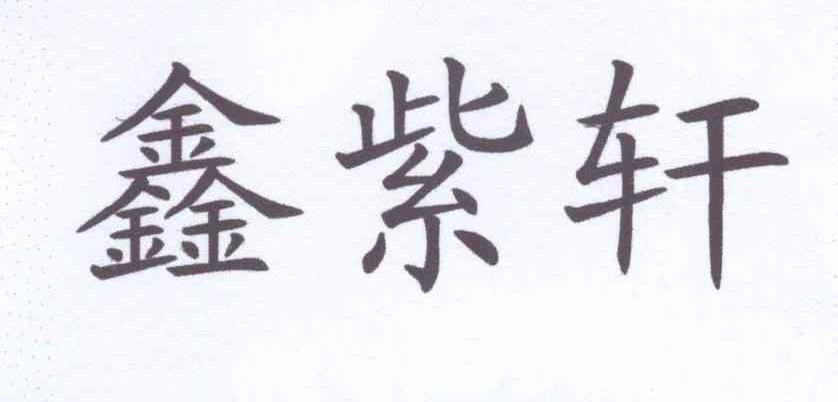 鑫紫轩